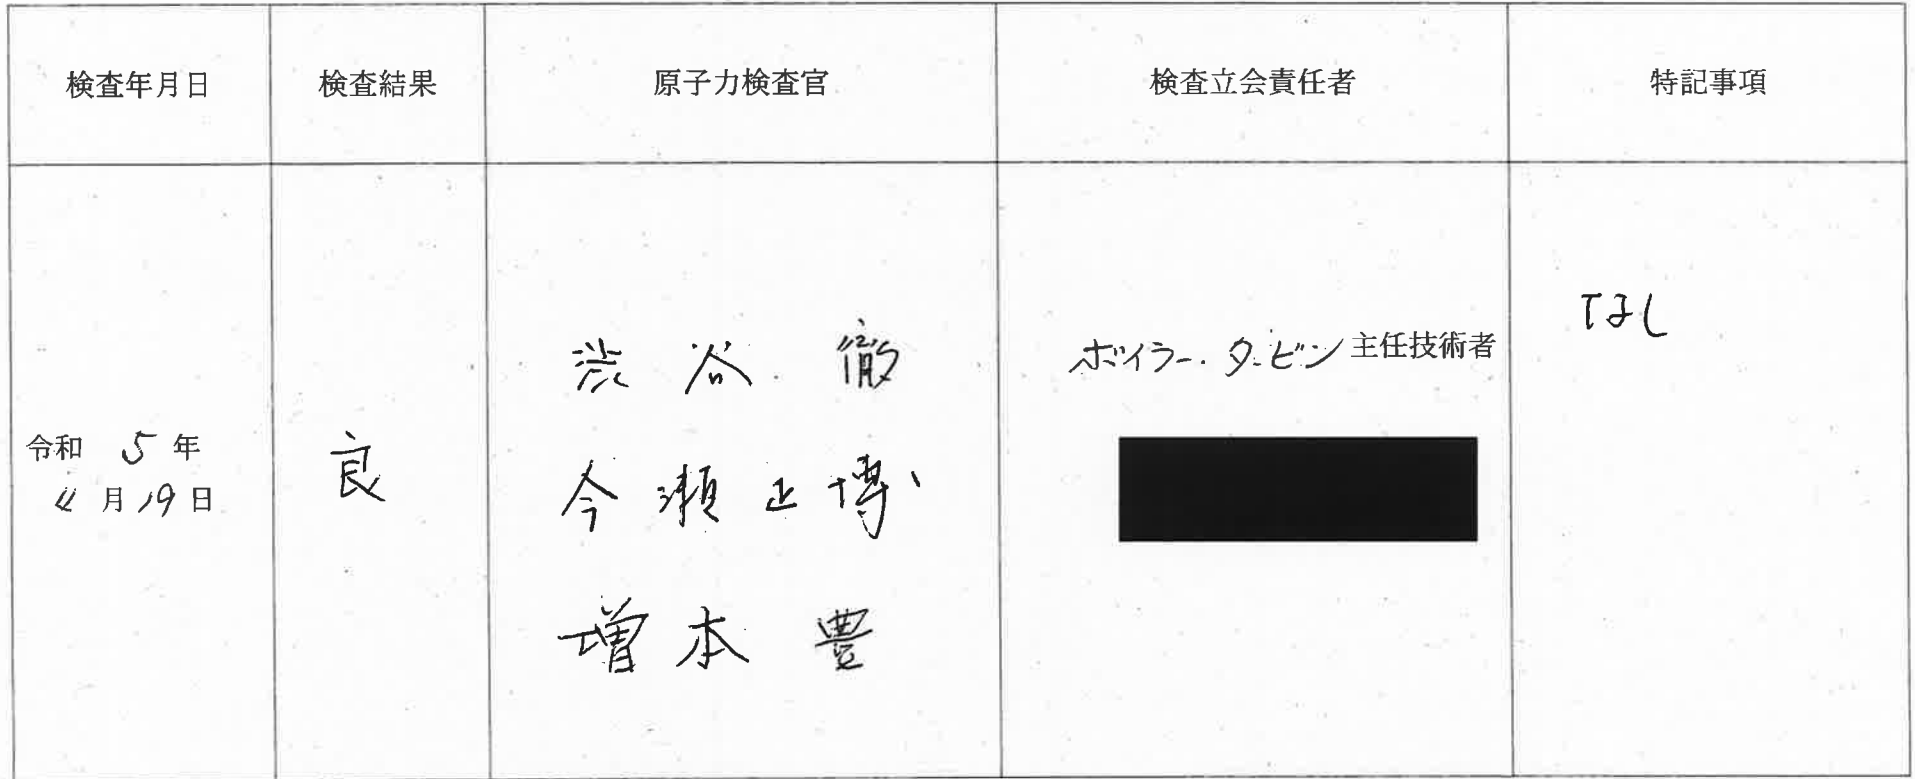 検査年月日 検査結果 原子力検査官 検査立会責任者 特記事項
令和 5 年
月 19 日
良
渋谷 徹
今瀬正博
増本 豊
ボイラー・タービン主任技術者
なし